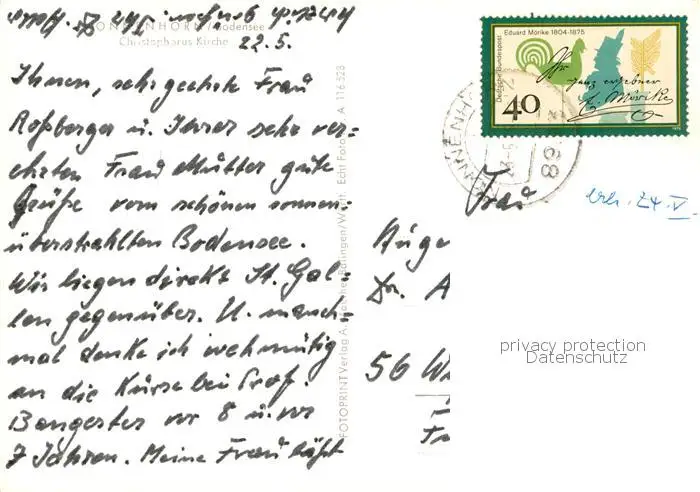 NONNENHORN/Bodensee
Christophorus Kirche
22.5.
Ihnen, sehr geehrte Frau
Roßberger u. Ihrer sehr ver=
ehrten Frau Mutter gute
Grüße vom schönen sonnen=
überstrahlten Bodensee.
Wir liegen direkt St. Gal=
len gegenüber. U. manch=
mal denke ich wehmütig
an die Kurse bei Prof.
vor 8 u. vor
7 Jahren. Meine Frau läßt
FOTOPRINT Verlag A. Balingen/Württ. Echt Foto A 116 528
Deutsche Bundespost
Eduard Mörike 1804-1875
ganz ergebner
E. Mörike
40
Frau
erh. 24. V.
Dr. A
56 W
privacy protection
Datenschutz